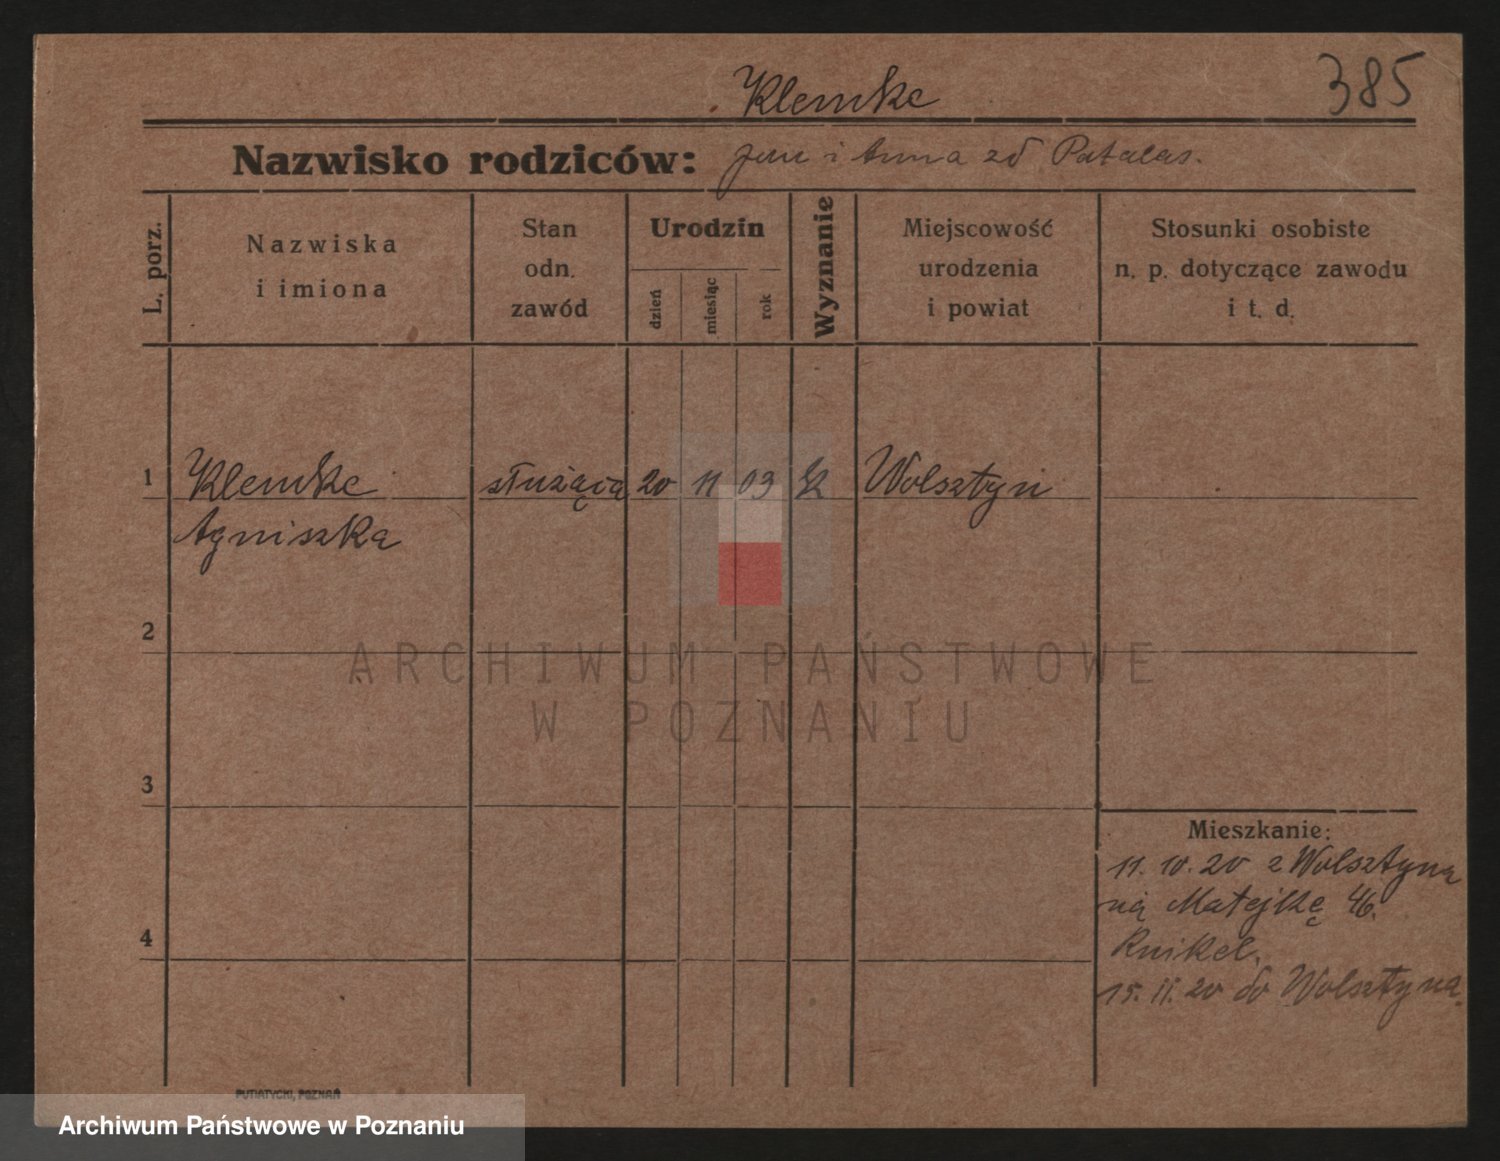 Klemke
385
Nazwisko rodziców: Jan i Anna zd Patalas.
L. porz.
Nazwiska
i imiona
Stan
odn.
zawód
Urodzin
dzień
miesiąc
rok
Wyznanie
Miejscowość
urodzenia
i powiat
Stosunki osobiste
n. p. dotyczące zawodu
i t. d.
1
Klemke
służąca
20
11
03
Wolsztyn
Agnieszka
2
ARCHIWUM PAŃSTWOWE
W POZNANIU
3
Mieszkanie:
11. 10. 20 z Wolsztyna
na Matejkę 46.
4
Knikel.
15. 11. 20 do Wolsztyna.
PUTIATYCKI, POZNAŃ
Archiwum Państwowe w Poznaniu